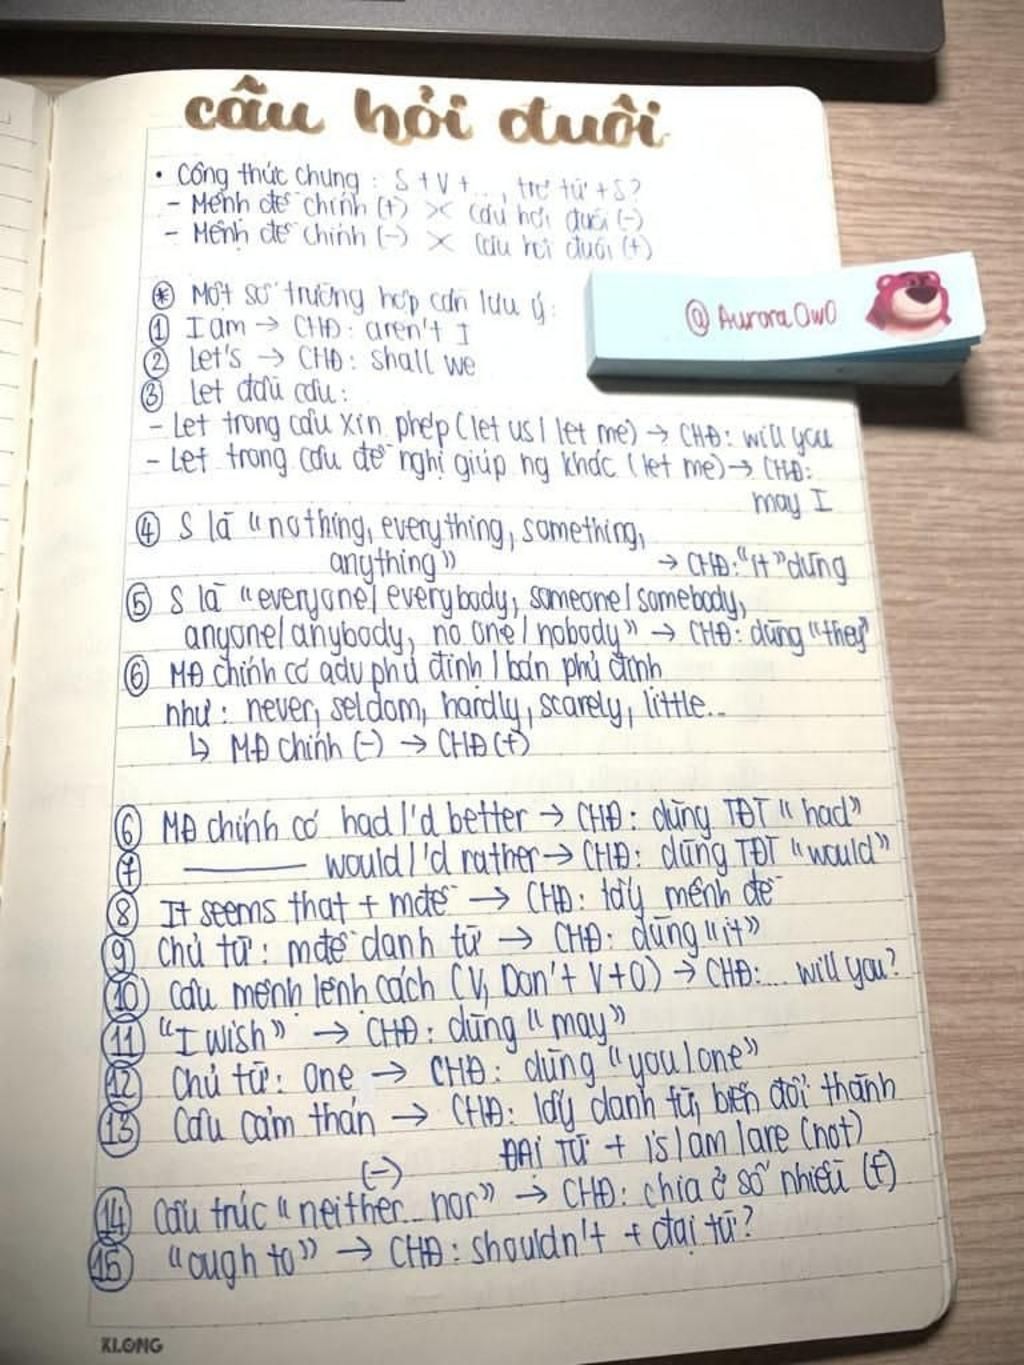 câu hỏi đuôi
• Công thức chung : S + V + ... , trợ từ + S?
- Mệnh đề chính (+) >< câu hỏi đuôi (-)
- Mệnh đề chính (-) >< câu hỏi đuôi (+)
* Một số trường hợp cần lưu ý:
@AuroraOwO
1 I am → CHĐ: aren't I
2 Let's → CHĐ: shall we
3 Let đầu câu:
- Let trong câu xin phép (let us / let me) → CHĐ: will you
- Let trong câu đề nghị giúp ng khác (let me) → CHĐ:
may I
4 S là "nothing, everything, something,
anything" → CHĐ: "it" dùng
5 S là "everyone / everybody, someone / somebody,
anyone / anybody, no one / nobody" → CHĐ: dùng "they"
6 MĐ chính có adv phủ định / bán phủ định
như : never, seldom, hardly, scarely, little..
↳ MĐ chính (-) → CHĐ (+)
6 MĐ chính có had / 'd better → CHĐ: dùng TĐT "had"
7 ——— would / 'd rather → CHĐ: dùng TĐT "would"
8 It seems that + mđề → CHĐ: lấy mệnh đề
9 Chủ từ: mđề danh từ → CHĐ: dùng "it"
10 Câu mệnh lệnh cách (V, Don't + V + O) → CHĐ:... will you?
11 "I wish" → CHĐ: dùng "may"
12 Chủ từ: One → CHĐ: dùng "you / one"
13 Câu cảm thán → CHĐ: lấy danh từ, biến đổi thành
ĐẠI TỪ + is / am / are (not)
(-)
14 Cấu trúc "neither... nor" → CHĐ: chia ở số nhiều (+)
15 "ough to" → CHĐ: shouldn't + đại từ?
KLONG